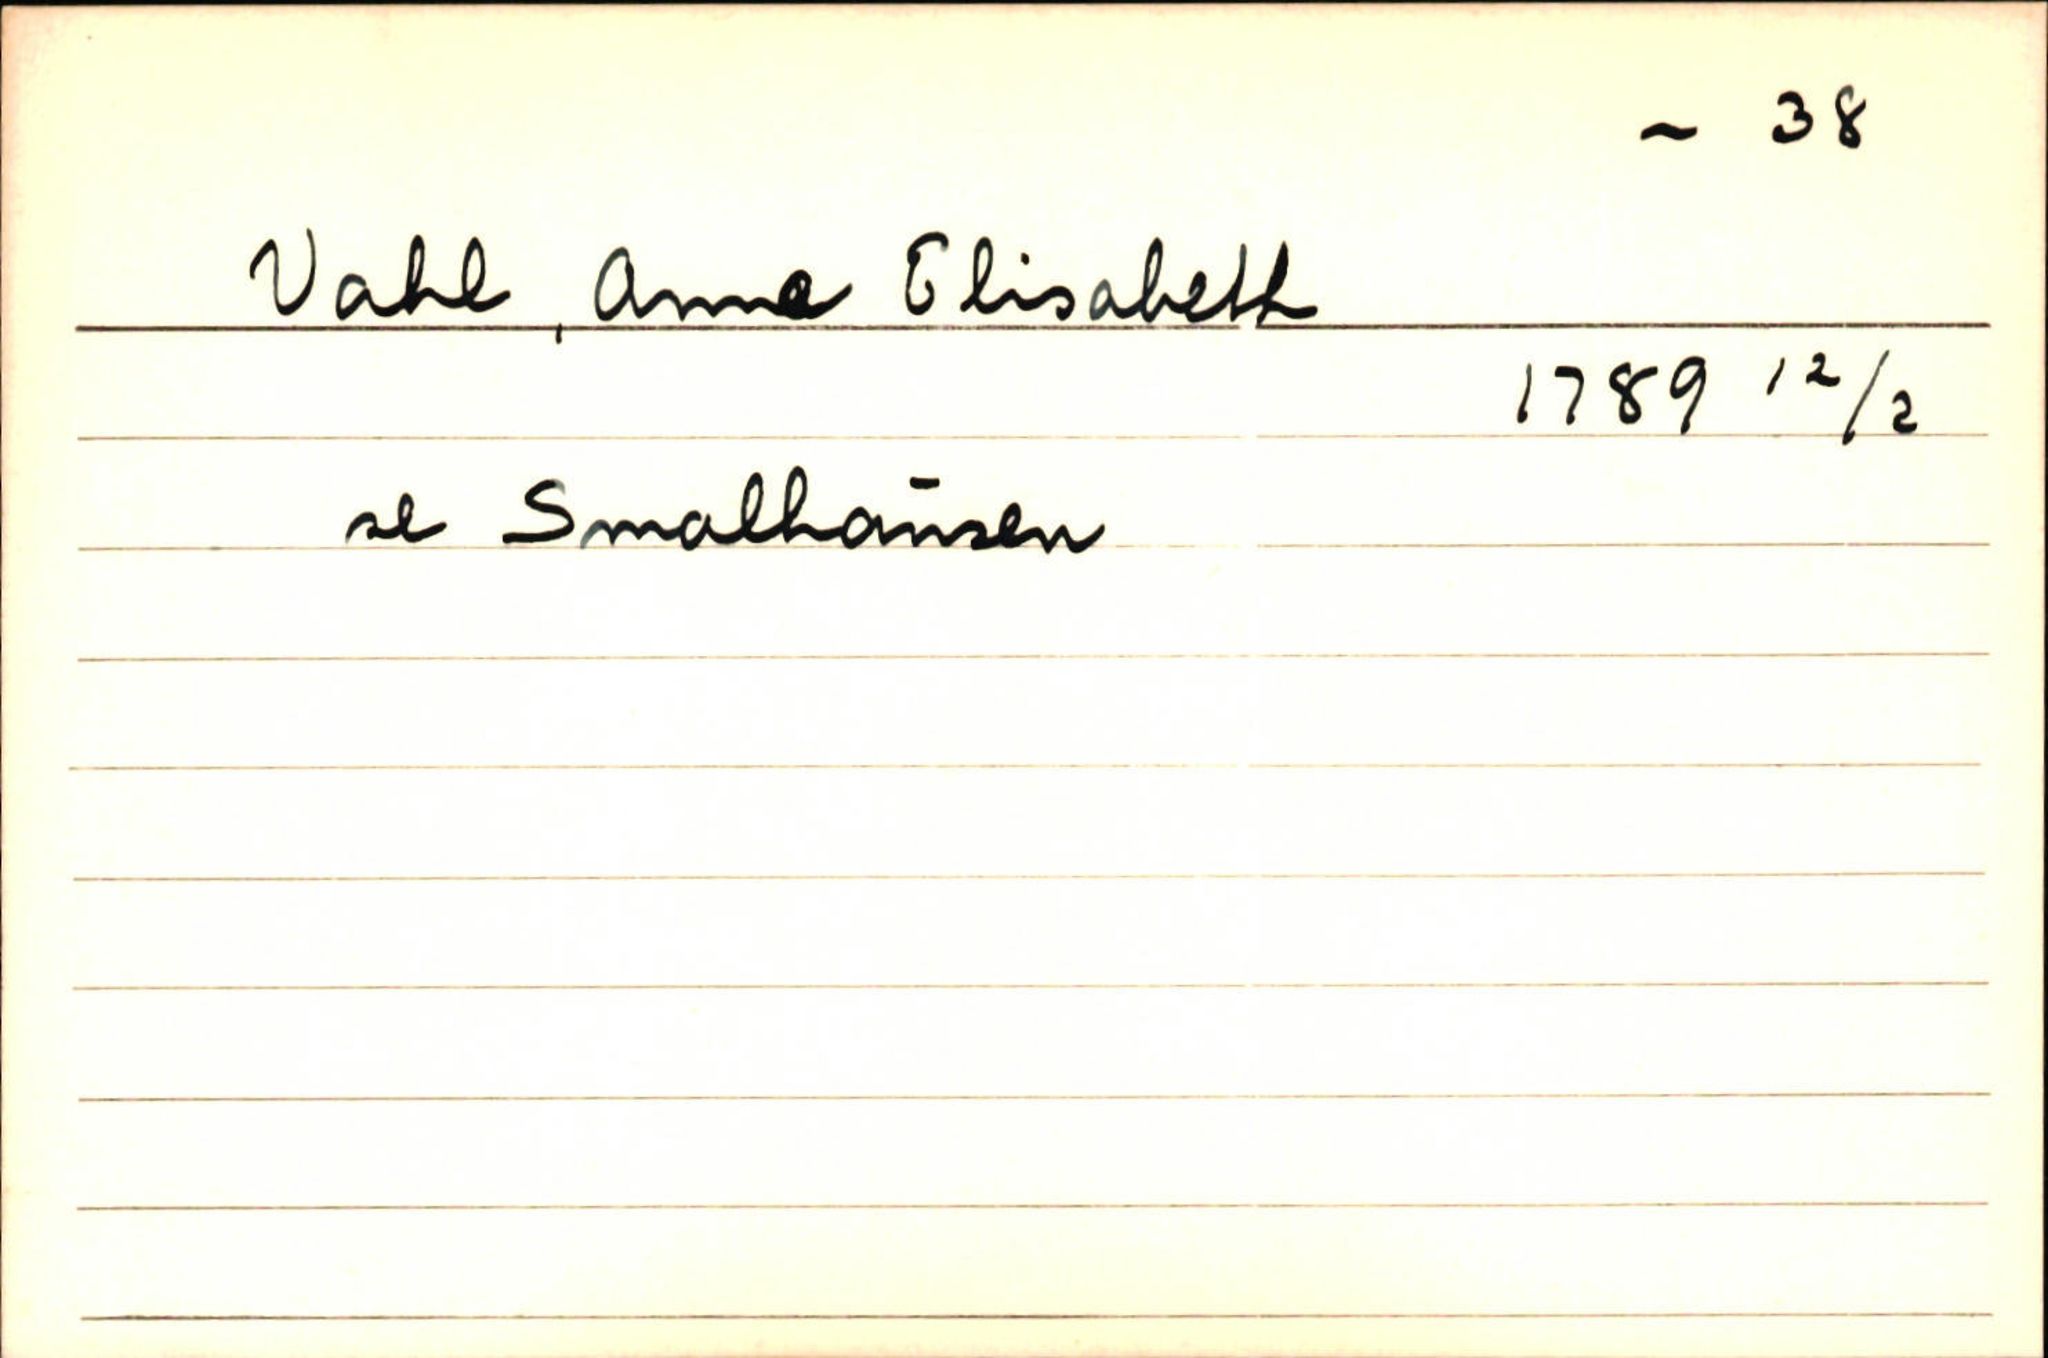 ~ 38
Vahl, Anna Elisabeth
1789 12/2
se Smalhausen